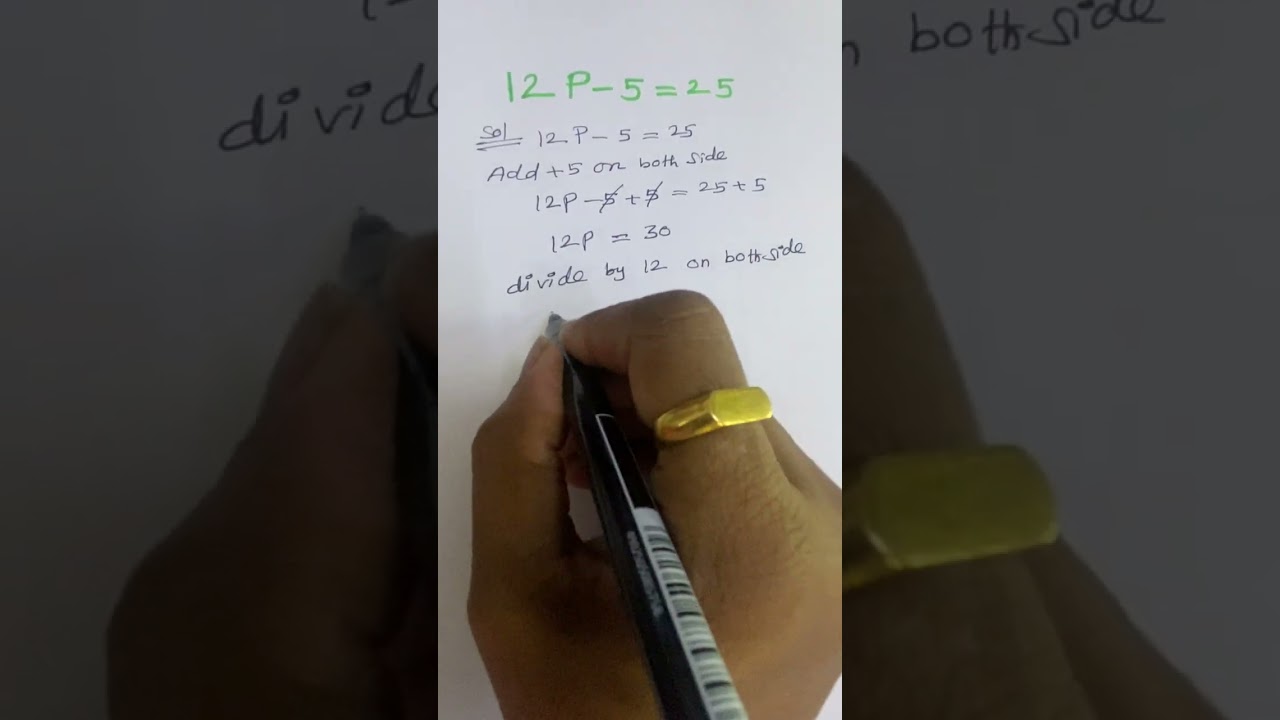 12P-5=25
Sol 12P-5=25
Add +5 on both side
12P-5+5=25+5
12P = 30
divide by 12 on bothside